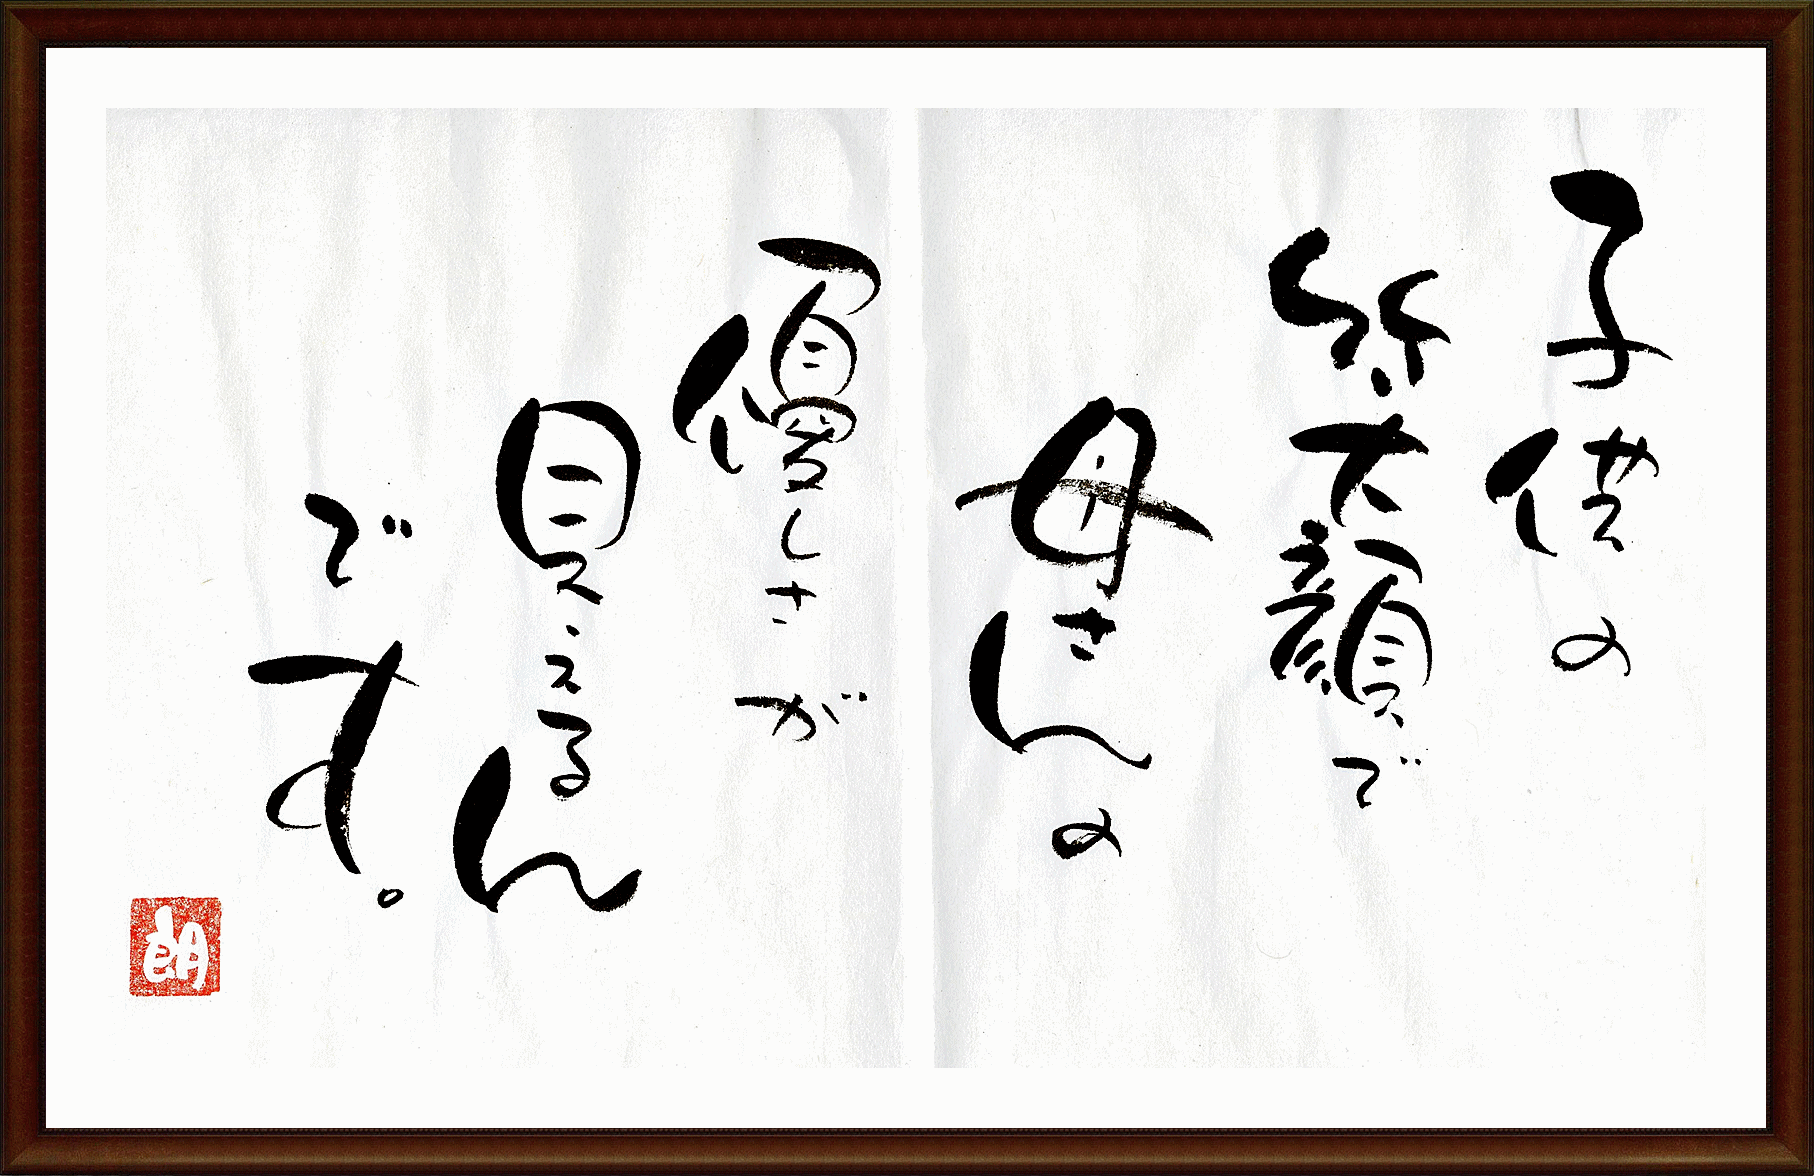 子供の
笑顔で
母さんの
優しさが
見えるん
です。
朗